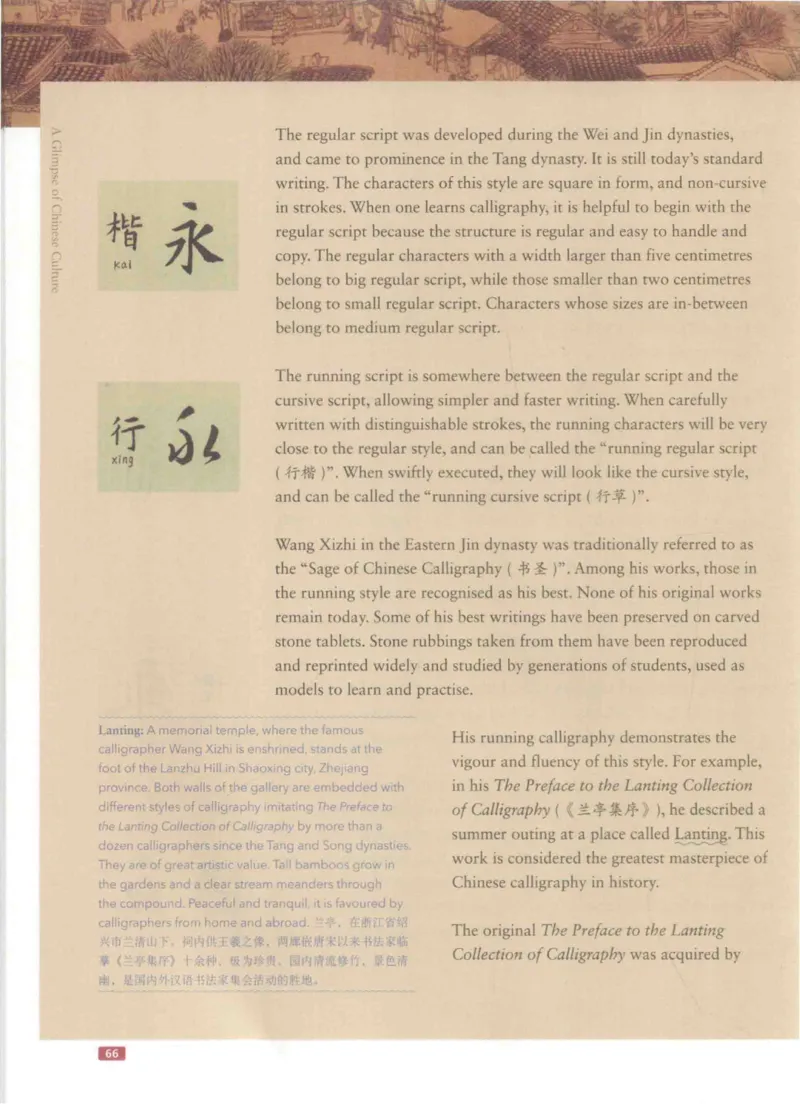 A Glimpse of Chinese Culture
楷 永
kai
The regular script was developed during the Wei and Jin dynasties,
and came to prominence in the Tang dynasty. It is still today's standard
writing. The characters of this style are square in form, and non-cursive
in strokes. When one learns calligraphy, it is helpful to begin with the
regular script because the structure is regular and easy to handle and
copy. The regular characters with a width larger than five centimetres
belong to big regular script, while those smaller than two centimetres
belong to small regular script. Characters whose sizes are in-between
belong to medium regular script.
行 永
xing
The running script is somewhere between the regular script and the
cursive script, allowing simpler and faster writing. When carefully
written with distinguishable strokes, the running characters will be very
close to the regular style, and can be called the “running regular script
( 行楷 )”. When swiftly executed, they will look like the cursive style,
and can be called the “running cursive script ( 行草 )”.
Wang Xizhi in the Eastern Jin dynasty was traditionally referred to as
the “Sage of Chinese Calligraphy ( 书圣 )”. Among his works, those in
the running style are recognised as his best. None of his original works
remain today. Some of his best writings have been preserved on carved
stone tablets. Stone rubbings taken from them have been reproduced
and reprinted widely and studied by generations of students, used as
models to learn and practise.
Lanting: A memorial temple, where the famous
calligrapher Wang Xizhi is enshrined, stands at the
foot of the Lanzhu Hill in Shaoxing city, Zhejiang
province. Both walls of the gallery are embedded with
different styles of calligraphy imitating The Preface to
the Lanting Collection of Calligraphy by more than a
dozen calligraphers since the Tang and Song dynasties.
They are of great artistic value. Tall bamboos grow in
the gardens and a clear stream meanders through
the compound. Peaceful and tranquil, it is favoured by
calligraphers from home and abroad. 兰亭，在浙江省绍
兴市兰渚山下，祠内供王羲之像，两廊嵌唐宋以来书法家临
摹《兰亭集序》十余种，极为珍贵。园内清流修竹，景色清
幽，是国内外汉语书法家集会活动的胜地。
His running calligraphy demonstrates the
vigour and fluency of this style. For example,
in his The Preface to the Lanting Collection
of Calligraphy (《兰亭集序》), he described a
summer outing at a place called Lanting. This
work is considered the greatest masterpiece of
Chinese calligraphy in history.
The original The Preface to the Lanting
Collection of Calligraphy was acquired by
66